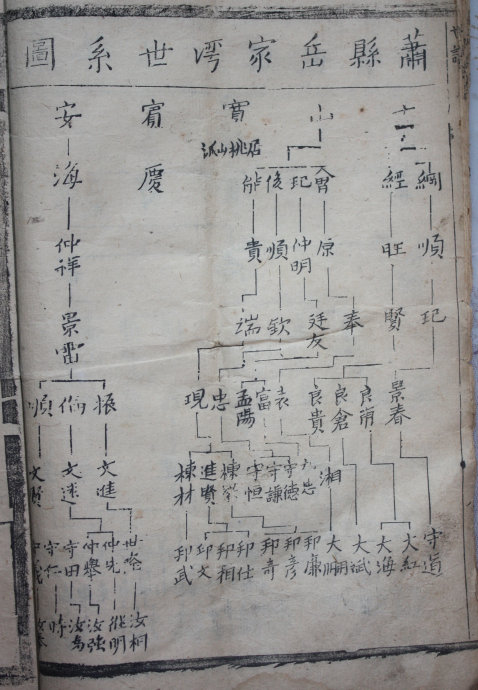 蕭縣岳家湾世系圖
山 寳 賔 安
居桃山孤
慶 海
綱 經 冑 玘 俊 能
順 旺 原 仲明 順 貴 仲祥
玘 賢 奉 廷友 欽 端 景雷
景春 良甫 良倉 良貴 袁 富 孟陽 忠 現 振 倫 順
湘 守德 守謙 守恒 進賢 棟材 文進 文迷 文賢
守道 大紅 大海 大斌 大鵬 邦廉 邦彥 邦奇 邦仕 邦相 邦文 邦武 仲先 仲舉 守田 守仁
汝桐 從明 汝強 汝為 時